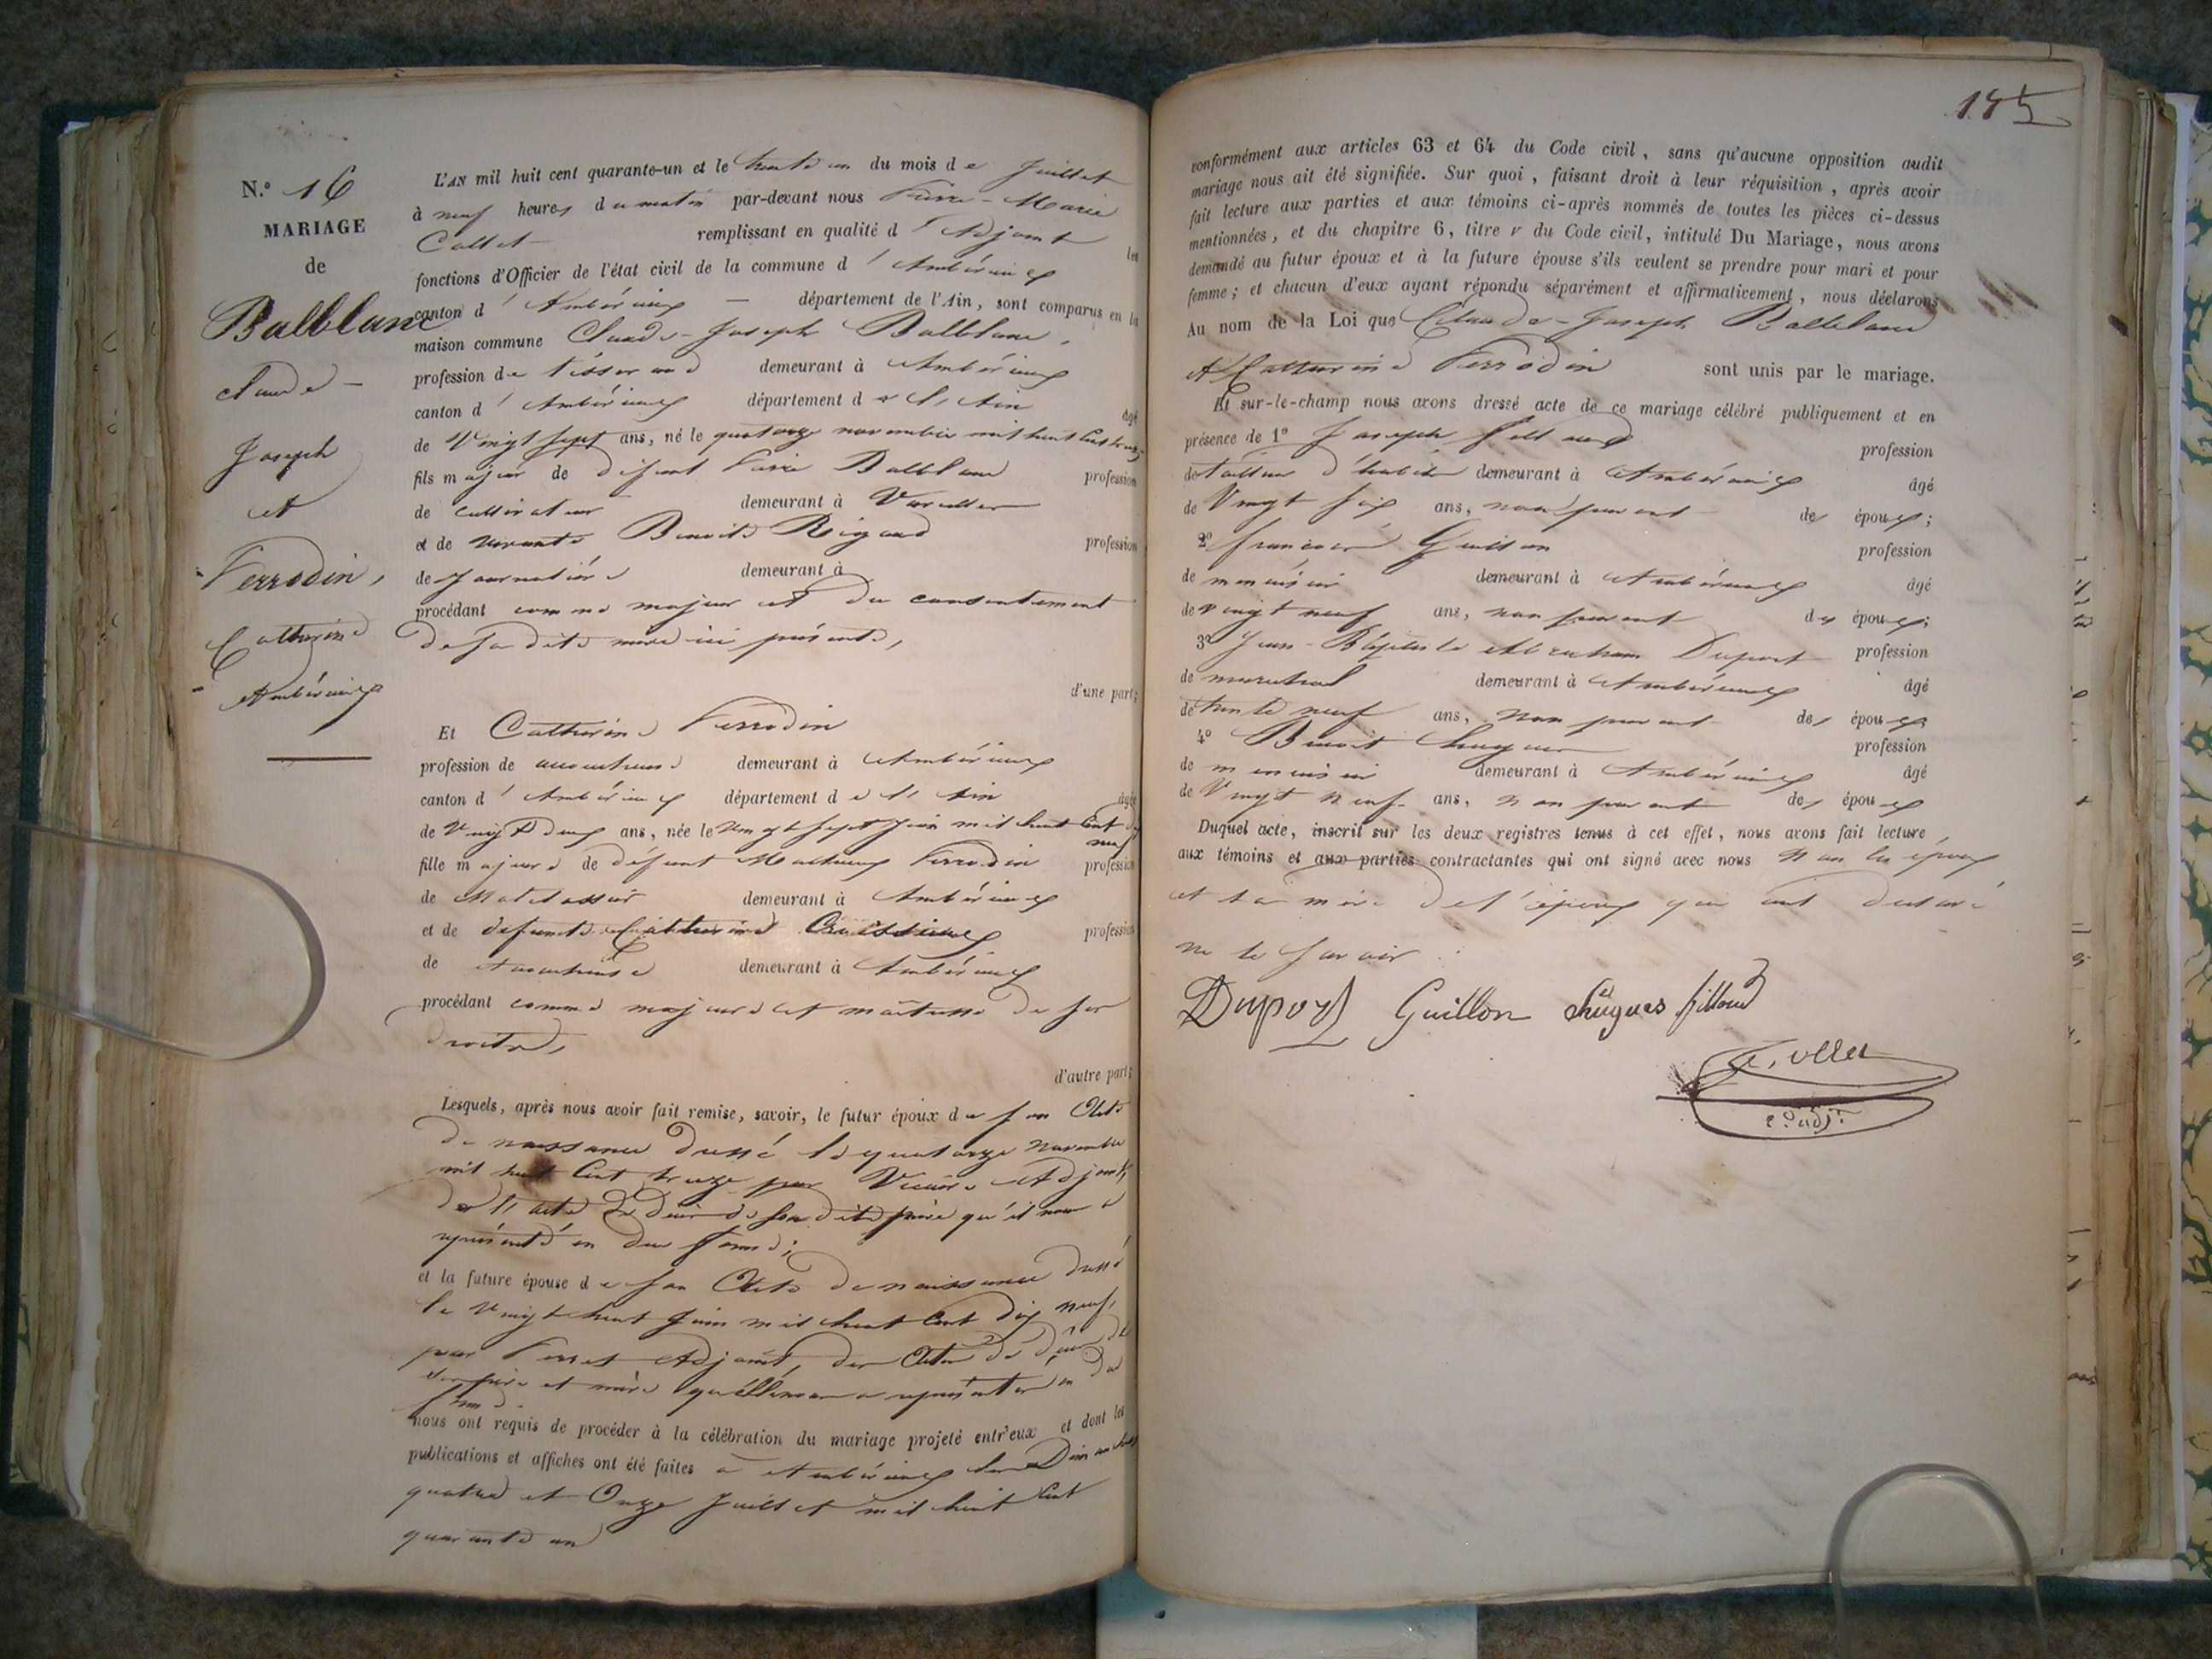 N.º 16
MARIAGE
de
Balblanc
Claude -
Joseph
et
Ferrodin,
Catherine
Ambérieux
L'AN mil huit cent quarante-un et le trente un du mois de Juillet
à neuf heures du matin par-devant nous Pierre-Marie
Collet remplissant en qualité d'Adjoint les
fonctions d'Officier de l'état civil de la commune d'Ambérieux
canton d'Ambérieux — département de l'Ain, sont comparus en la
maison commune Claude-Joseph Balblanc,
profession de tisserand demeurant à Ambérieux
canton d'Ambérieux département de l'Ain âgé
de Vingt sept ans, né le quatorze novembre mil huit cent treize,
fils majeur de défunt Balblanc profession
de cultivateur demeurant à
et de vivante Benoite Rigaud profession
de Journalière demeurant à
procédant comme majeur et du consentement
de sa dite mere ici présente,
d'une part;
Et Catherine Ferrodin
profession de demeurant à Ambérieux
canton d'Ambérieux département de l'Ain âgée
de Vingt deux ans, née le Vingt sept Juin mil huit cent dix
neuf
fille majeure de défunt Mathieu Ferrodin profession
de Matelassier demeurant à Ambérieux
et de defunte Catherine profession
de demeurant à Ambérieux
procédant comme majeure et maitresse de ses
droits,
d'autre part;
Lesquels, après nous avoir fait remise, savoir, le futur époux de son Acte
de naissance dressé le quatorze Novembre
mil huit Cent treize par Adjoint,
de l'acte de décès de son dit père qu'il nous a
représenté en due forme;
et la future épouse de son Acte de naissance dressé
le Vingt huit Juin mil huit Cent dix neuf,
par Adjoint, des Actes de décès de
ses père et mère qu'elle nous a représentés en due
forme.
nous ont requis de procéder à la célébration du mariage projeté entr'eux et dont les
publications et affiches ont été faites à Ambérieux les Dimanches
quatre et Onze Juillet mil huit Cent
quarante un
185
conformément aux articles 63 et 64 du Code civil, sans qu'aucune opposition audit
mariage nous ait été signifiée. Sur quoi, faisant droit à leur réquisition, après avoir
fait lecture aux parties et aux témoins ci-après nommés de toutes les pièces ci-dessus
mentionnées, et du chapitre 6, titre v du Code civil, intitulé Du Mariage, nous avons
demandé au futur époux et à la future épouse s'ils veulent se prendre pour mari et pour
femme; et chacun d'eux ayant répondu séparément et affirmativement, nous déclarons
Au nom de la Loi que Claude-Joseph Balblanc
et Catherine Ferrodin sont unis par le mariage.
Et sur-le-champ nous avons dressé acte de ce mariage célébré publiquement et en
présence de 1º Joseph profession
de tailleur d'habits demeurant à Ambérieux âgé
de Vingt six ans, non parent des époux;
2º François Guillon profession
de menuisier demeurant à Ambérieux âgé
de vingt neuf ans, non parent des époux;
3º Jean-Baptiste Abraham Duport profession
de marechal demeurant à Ambérieux âgé
de trente neuf ans, non parent des époux;
4º Benoit Chugues profession
de menuisier demeurant à Ambérieux âgé
de Vingt neuf ans, non parent des époux
Duquel acte, inscrit sur les deux registres tenus à cet effet, nous avons fait lecture
aux témoins et aux parties contractantes qui ont signé avec nous Non les époux
et la mère de l'époux qui ont declaré
ne le savoir
Duport Guillon Chugues fillioud
Collet
adjt.